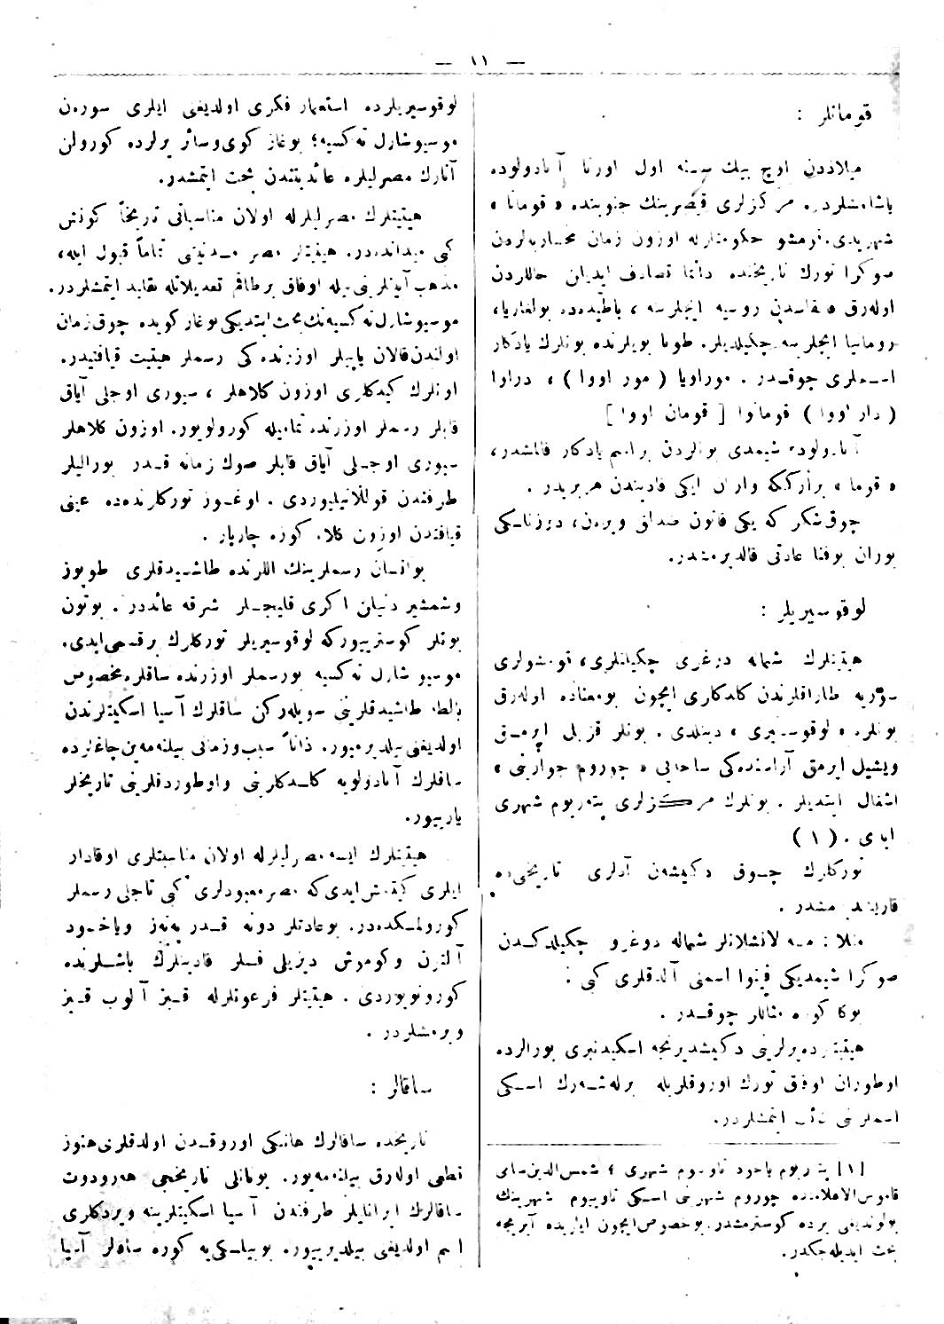 — ١١ —
قومانلر :
میلاددن اوچ بیك سنه اول اورتا آنادولوده
یاشامشلردر. مرکزلری قیصرینك جنوبنده « قومانا »
شهریدی. قومشو حکومتلرله اوزون زمان محاربه‌لردن
صوکرا تورك تاریخنده دائما تصادف ایدیلن حاللردن
اوله‌رق قفقاسدن روسیه ایچلرینه ، باطیده‌ده بولغاریا،
رومانیا ایچلرینه چکیلدیلر. طونا بویلرنده بونلرك یادکار
اسملری چوقدر . موراویا ( مور اووا ) ، دراوا
( دار اووا ) قومانوا [ قومان اووا ]
آنادولوده شیمدی بونلردن بر اسم یادکار قالمشدر،
« قوما » بر ارککه واران ایکی قادیندن هربریدر .
چوق شکر که یکی قانون ضدانی ویره‌ن، دوزنلکی
بوزان بوفنا عادتی قالدیرمشدر.
لوقوسیریلر :
هیتیتلرك شماله دوغری چکیلنلری، قومشولری
سوریه طارافلرندن کلدکاری ایچون بومعناده اوله‌رق
بونلره « لوقوسیری » دینلدی . بونلر قزیل ایرمق
ویشیل ایرمق آراسنده‌کی ساحه‌یی « چوروم جوارینی »
اشغال ایتدیلر . بونلرك مرکزلری پته‌ریوم شهری
ایدی . ( ١ )
تورکلرك چوق دکیشه‌ن آدلری تاریخی
قاریشدیرمشدر .
مثلا : شماله دوغرو چکیلدکدن
صوکرا شیمدیکی فینوا اسمنی آلدقلری کبی :
بوکا کوره مثاللر چوقدر .
هیتیتلرده یرلرینی دکیشدیرنجه اسکیدنبری بورالرده
اوطوران اوفق تورك اوروقلریله برله‌شه‌رك اسکی
اسملرینی اتمشلردر.
[١] پته‌ریوم یاخود تاویوم شهری ؛ شمس‌الدین سامی
قاموس‌الاعلامنده چوروم شهرینی اسکی تاویوم شهرینك
بولوندیغی یرده کوسترمشدر. بوخصوص ایچون ایلریده آیریجه
بحث ایدیله‌جکدر.
لوقوسیریلرده استعمار فکری اولدیغنی ایلری سوره‌ن
موسیو شارل ته‌کسیه؛ بوغاز کوی وسائر یرلرده کورولن
آثارك مصرلیلره عائدیتندن بحث ایتمشدر.
هیتیتلرك مصرلیلرله اولان مناسباتی تاریخاً کونش
کبی میدانده‌در. هیتیتلر مصر مدنیتنی تماماً قبول ایله،
مذهب آیینلرینی بیله اوفاق بر طاقم تعدیلاتله تقلید ایتمشلردر.
موسیو شارل ته‌کسیه‌نك بحث ایتدیکی بوغاز کویده چوق زمان
اولندن قالان یاپیلر اوزرنده‌کی رسملر هیتیت قیافتیدر.
اونلرك کیدکلری اوزون کلاهلر ، سیوری اوجلی آیاق
قابلر رسملر اوزرنده تمامیله کورولویور. اوزون کلاهلر
سیوری اوجلی آیاق قابلر صوك زمانه قدر بورالیلر
طرفندن قوللانیلیوردی . اوغوز تورکلرنده‌ده عینی
قیافتدن اوزون کلاه کوزه چارپار .
بو انسان رسملرینك اللرنده طاشیدقلری طوپوز
وشمشیر دنیلن اکری قلیجلر شرقه عائددر . بوتون
بونلر کوستریورکه لوقوسیریلر تورکلرك برقسمی ایدی.
موسیو شارل ته‌کسیه بورسملر اوزرنده ساقلره مخصوص
بالطه طاشیدقلرینی سویله‌رکن ساقلرك آسیا اسکیتلرندن
اولدیغنی بیلدیرمیور. ذاتاً سبب وزمانی بیلنه‌مه‌ین چاغلرده
ساقلرك آنادولویه کلدکلرینی واوطوردقلرینی تاریخلر
یازییور.
هیتیتلرك ایسه مصرلیلرله اولان مناسبتلری اوقادار
ایلری کیتمش ایدی که مصر معبودلری کبی تاجلی رسملر
کورولمکده‌در. بوعادتلر دونه قدر په‌نه‌ز ویاخود
آلتون وکوموش دیزیلی فسلر قادینلرك باشلرنده
کورونویوردی . هیتیتلر فرعونلرله قیز آلوب قیز
ویرمشلردر .
ساقالر :
تاریخده ساقالرك هانکی اوروقدن اولدقلری هنوز
قطعی اوله‌رق بیلنه‌مه‌یور. یونانلی تاریخجی هه‌رودوت
ساقالرك ایرانلیلر طرفندن آسیا اسکیتلرینه ویردکلری
اسم اولدیغنی بیلدیرییور. بو بیلکی‌یه کوره ساقالر آسیا